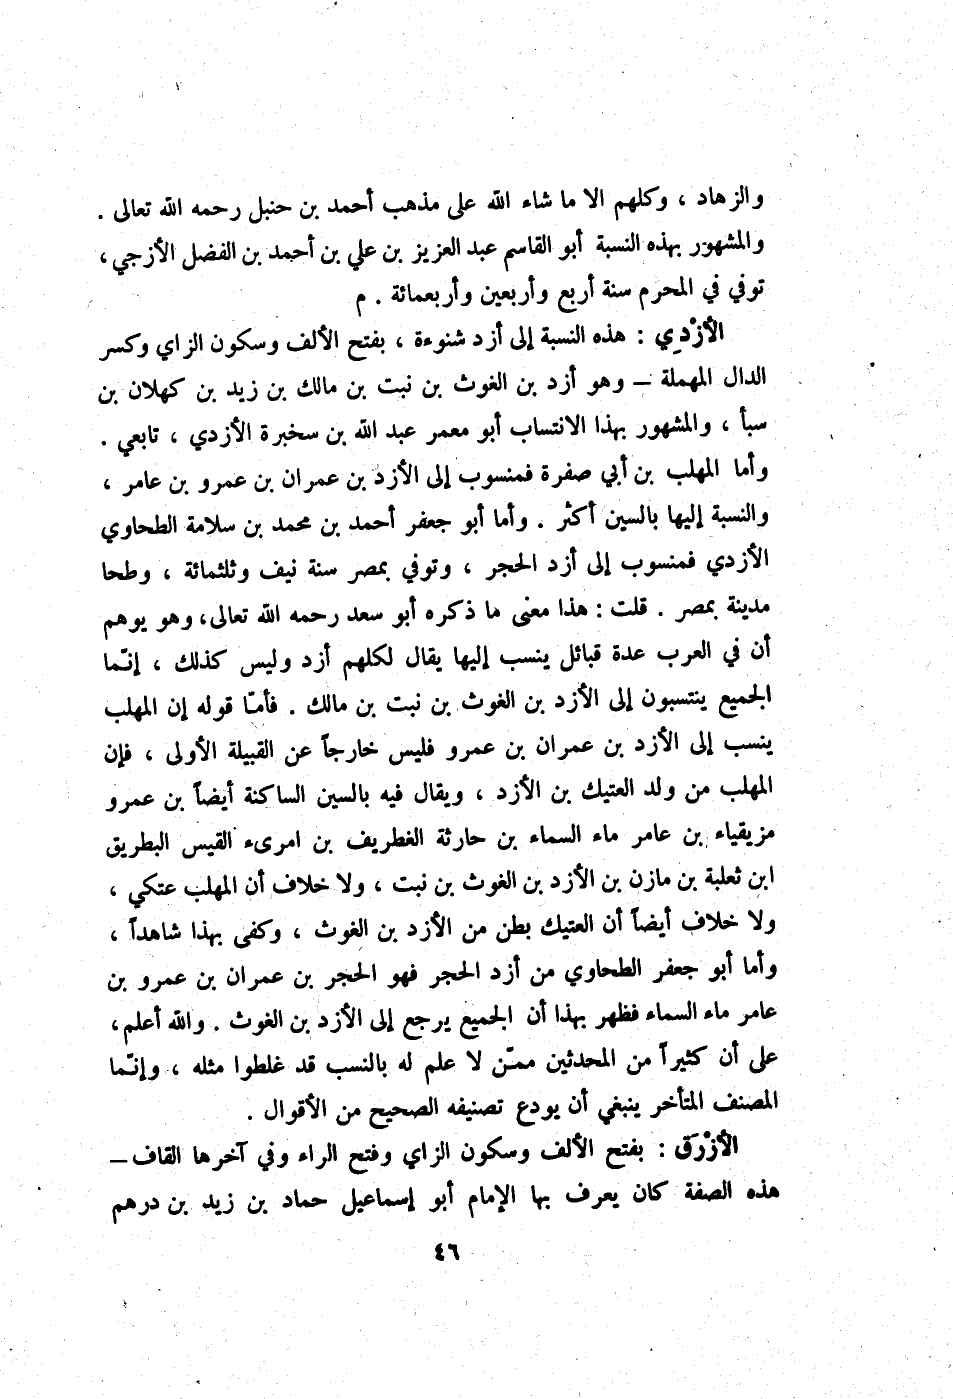 والزهاد ، وكلهم الا ما شاء الله على مذهب أحمد بن حنبل رحمه الله تعالى .
والمشهور بهذه النسبة أبو القاسم عبد العزيز بن علي بن أحمد بن الفضل الأزجي ،
توفي في المحرم سنة أربع وأربعين وأربعمائة . م
الأَزْدِي : هذه النسبة إلى أزد شنوءة ، بفتح الألف وسكون الزاي وكسر
الدال المهملة – وهو أزد بن الغوث بن نبت بن مالك بن زيد بن كهلان بن
سبأ ، والمشهور بهذا الانتساب أبو معمر عبد الله بن سخبرة الأزدي ، تابعي .
وأما المهلب بن أبي صفرة فمنسوب إلى الأزد بن عمران بن عمرو بن عامر ،
والنسبة إليها بالسين أكثر . وأما أبو جعفر أحمد بن محمد بن سلامة الطحاوي
الأزدي فمنسوب إلى أزد الحجر ، وتوفي بمصر سنة نيف وثلثمائة ، وطحا
مدينة بمصر . قلت : هذا معنى ما ذكره أبو سعد رحمه الله تعالى، وهو يوهم
أن في العرب عدة قبائل ينسب إليها يقال لكلهم أزد وليس كذلك ، إنّما
الجميع ينتسبون إلى الأزد بن الغوث بن نبت بن مالك . فأمّا قوله إن المهلب
ينسب إلى الأزد بن عمران بن عمرو فليس خارجاً عن القبيلة الأولى ، فإن
المهلب من ولد العتيك بن الأزد ، ويقال فيه بالسين الساكنة أيضاً بن عمرو
مزيقياء بن عامر ماء السماء بن حارثة الغطريف بن امرىء القيس البطريق
ابن ثعلبة بن مازن بن الأزد بن الغوث بن نبت ، ولا خلاف أن المهلب عتكي ،
ولا خلاف أيضاً أن العتيك بطن من الأزد بن الغوث ، وكفى بهذا شاهداً ،
وأما أبو جعفر الطحاوي من أزد الحجر فهو الحجر بن عمران بن عمرو بن
عامر ماء السماء فظهر بهذا أن الجميع يرجع إلى الأزد بن الغوث . والله أعلم،
على أن كثيراً من المحدثين ممّن لا علم له بالنسب قد غلطوا مثله ، وإنّما
المصنف المتأخر ينبغي أن يودع تصنيفه الصحيح من الأقوال .
الأَزْرَق : بفتح الألف وسكون الزاي وفتح الراء وفي آخرها القاف –
هذه الصفة كان يعرف بها الإمام أبو إسماعيل حماد بن زيد بن درهم
٤٦